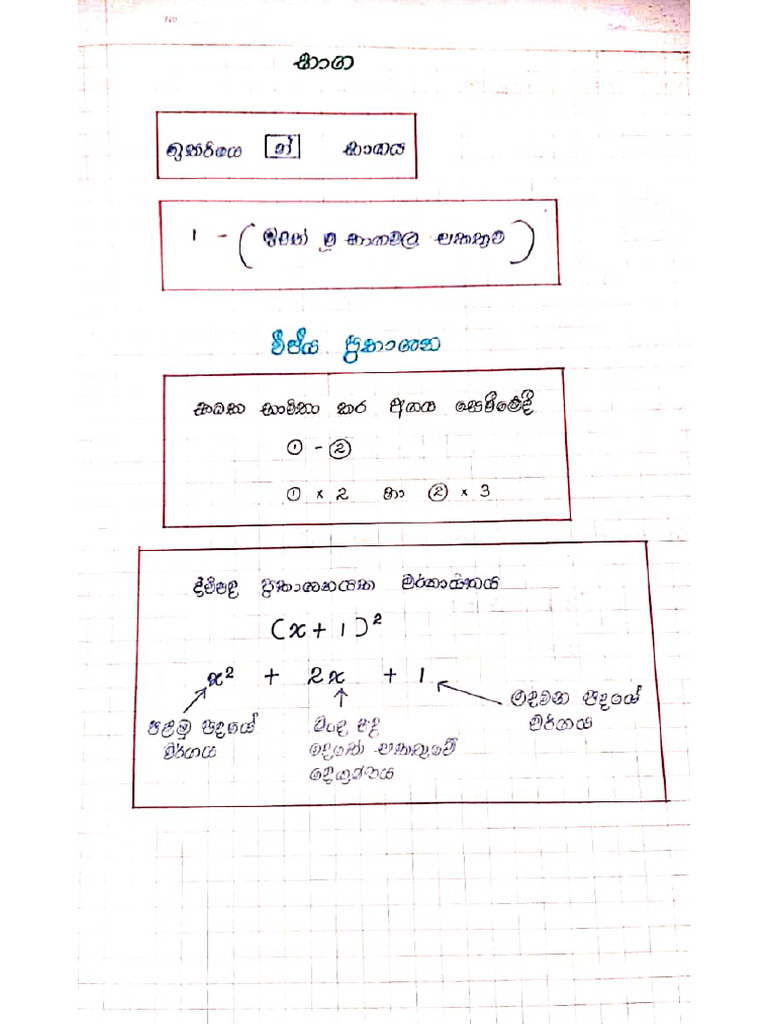 භාග
ඉතිරියෙ න් භාගය
1 - ( ඉවත් වූ භාගවල එකතුව )
වීජීය ප්‍රකාශන
සාධක භාවිතා කර අගය සෙවීමේදී
① - ②
① × 2 හා ② × 3
ද්විපද ප්‍රකාශනයක වර්ගායිතය
(x + 1)²
x² + 2x + 1
පළමු පදයේ වර්ගය
පද දෙකේ එකතුවේ දෙගුණය
දෙවන පදයේ වර්ගය